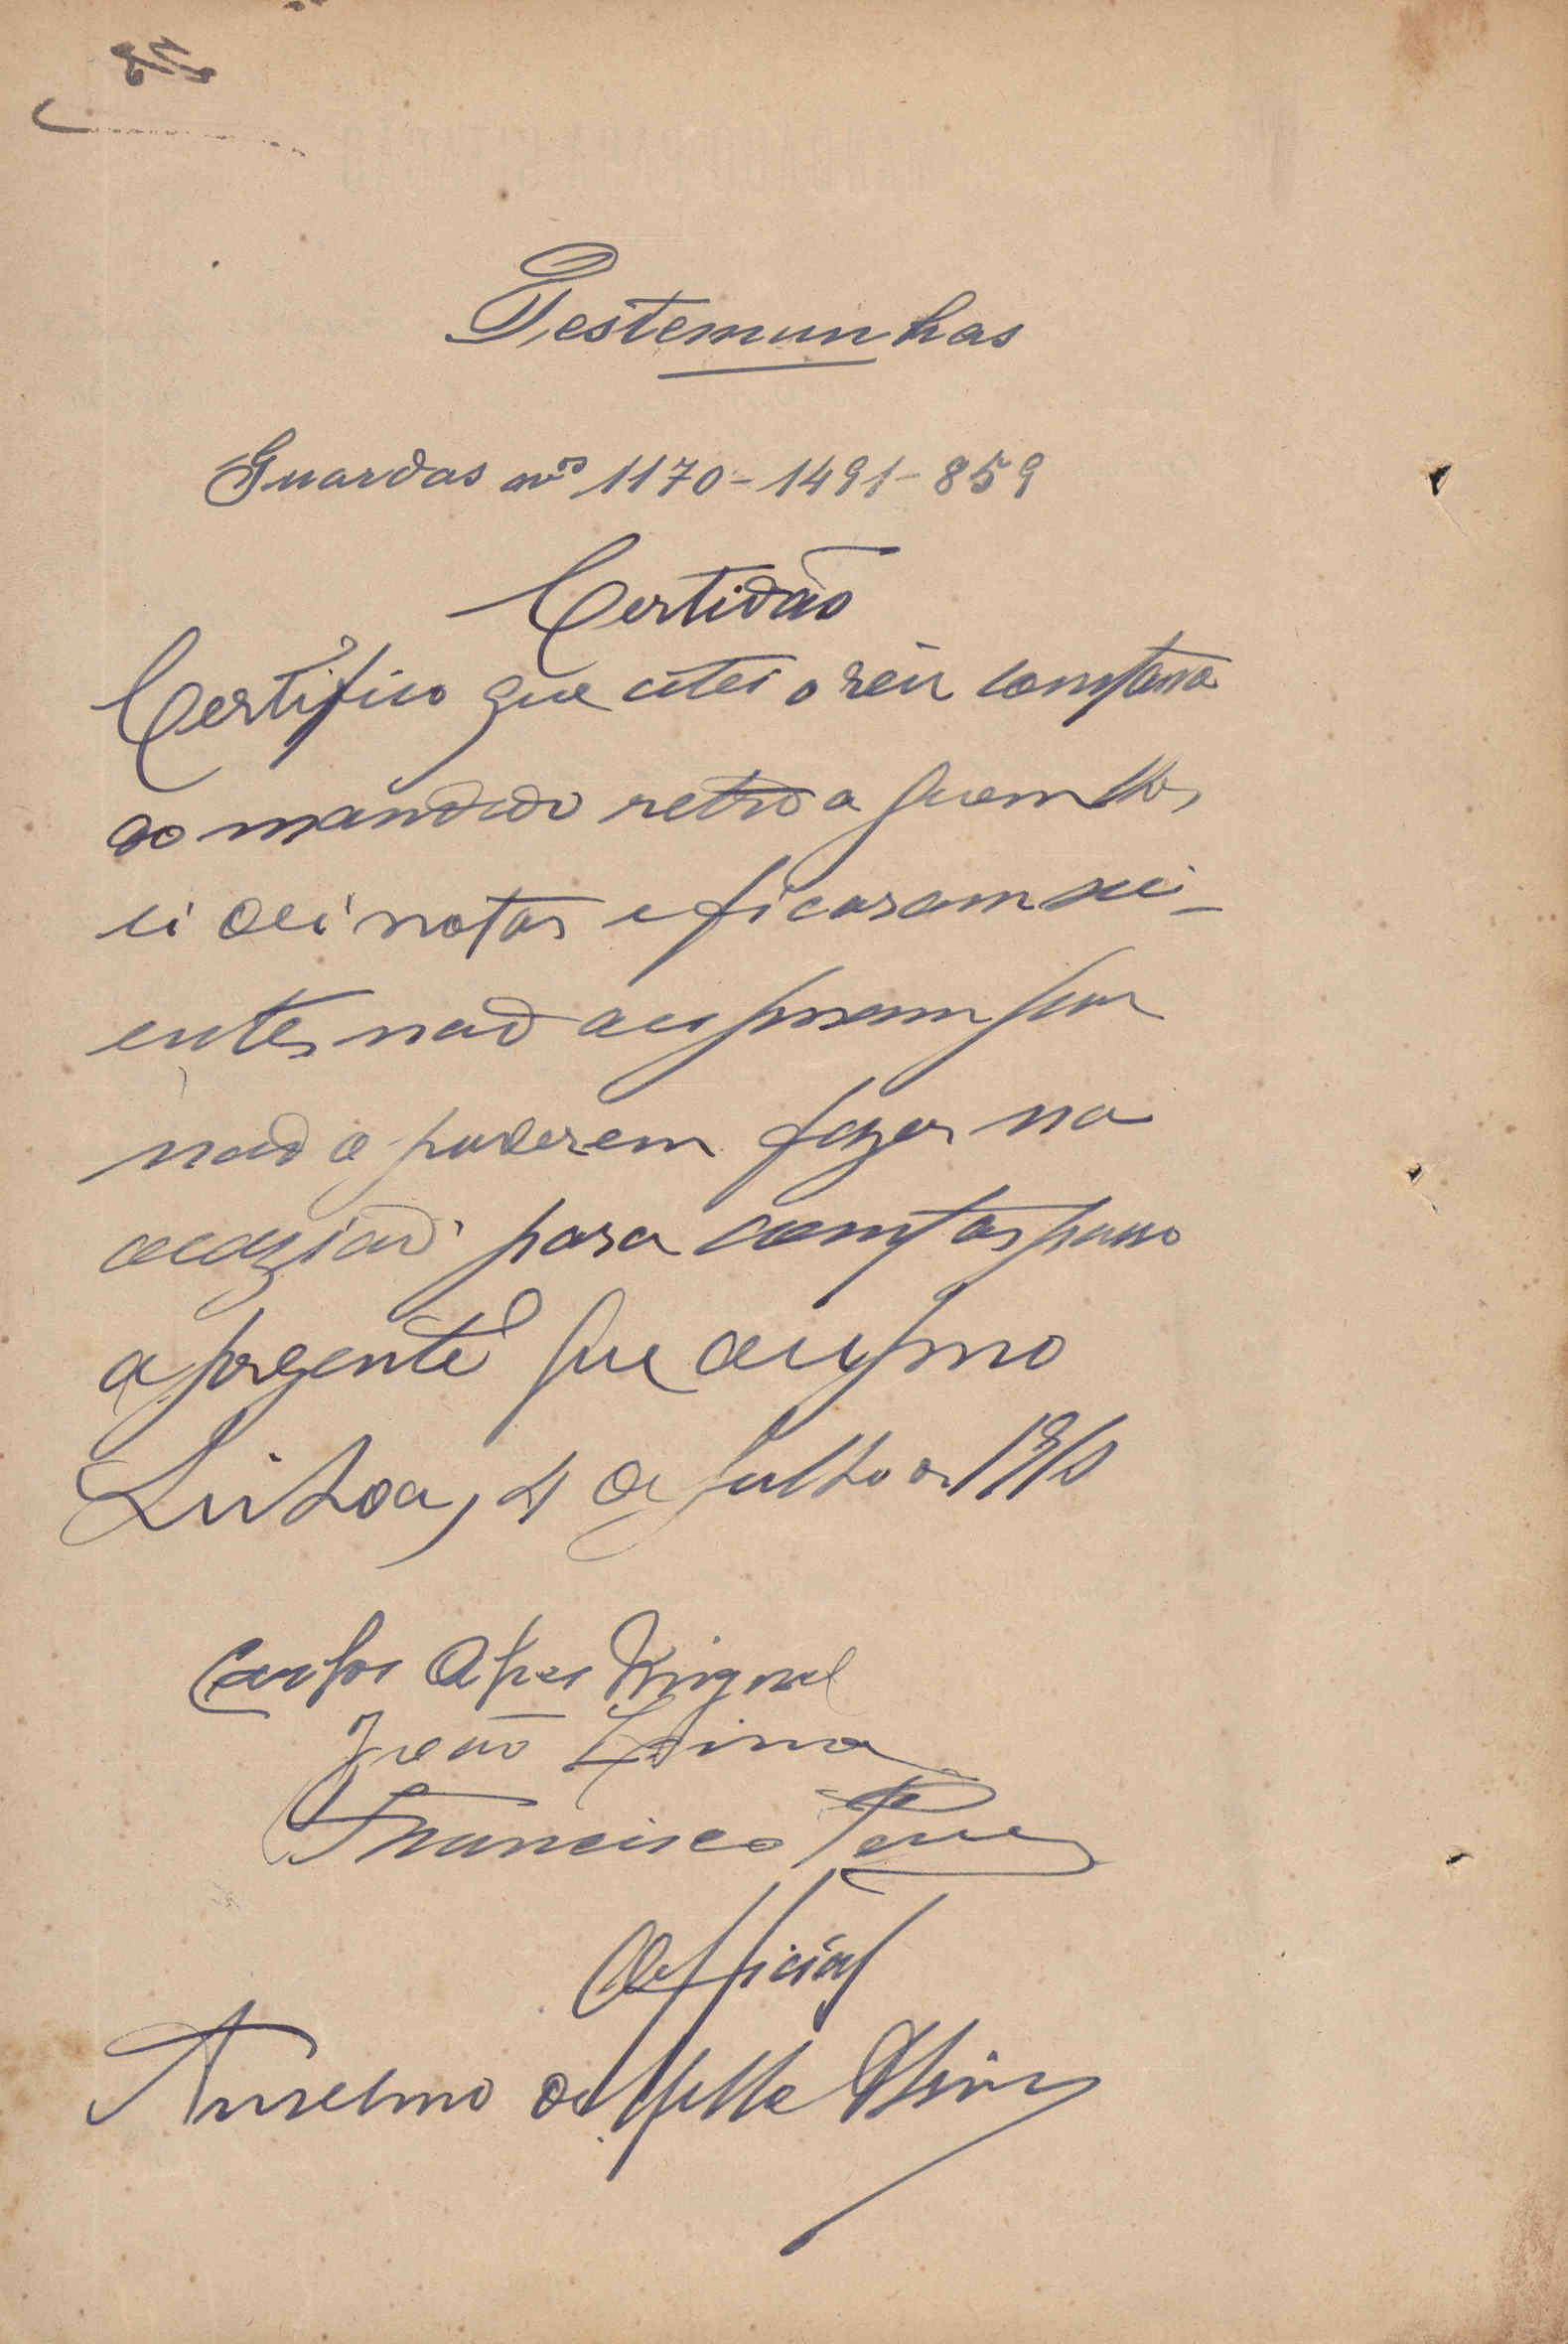 Testemunhas
Guardas nos 1170-1491-859
Certidão
Certifico que citei o réu constan
do mandado retro a quem
li dei notas e ficaram sci-
entes não assignam por
não o poderem fazer na
occazião para constar passo
a prezente que assigno
Lisboa, 4 de Julho de 1910
Carlos Miguel
João Lima
Francisco
Official
Anselmo de Mello